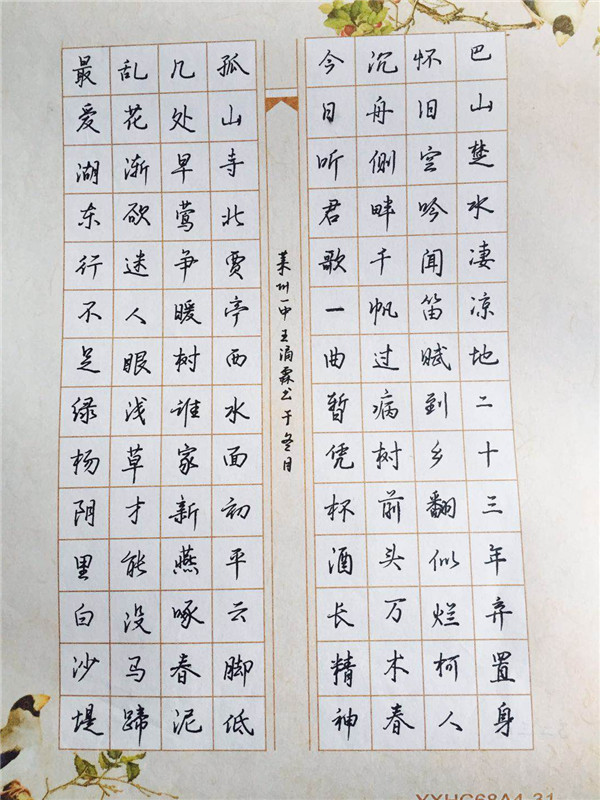 巴山楚水凄凉地二十三年弃置身
怀旧空吟闻笛赋到乡翻似烂柯人
沉舟侧畔千帆过病树前头万木春
今日听君歌一曲暂凭杯酒长精神
莱州一中王霖书于冬月
孤山寺北贾亭西水面初平云脚低
几处早莺争暖树谁家新燕啄春泥
乱花渐欲迷人眼浅草才能没马蹄
最爱湖东行不足绿杨阴里白沙堤